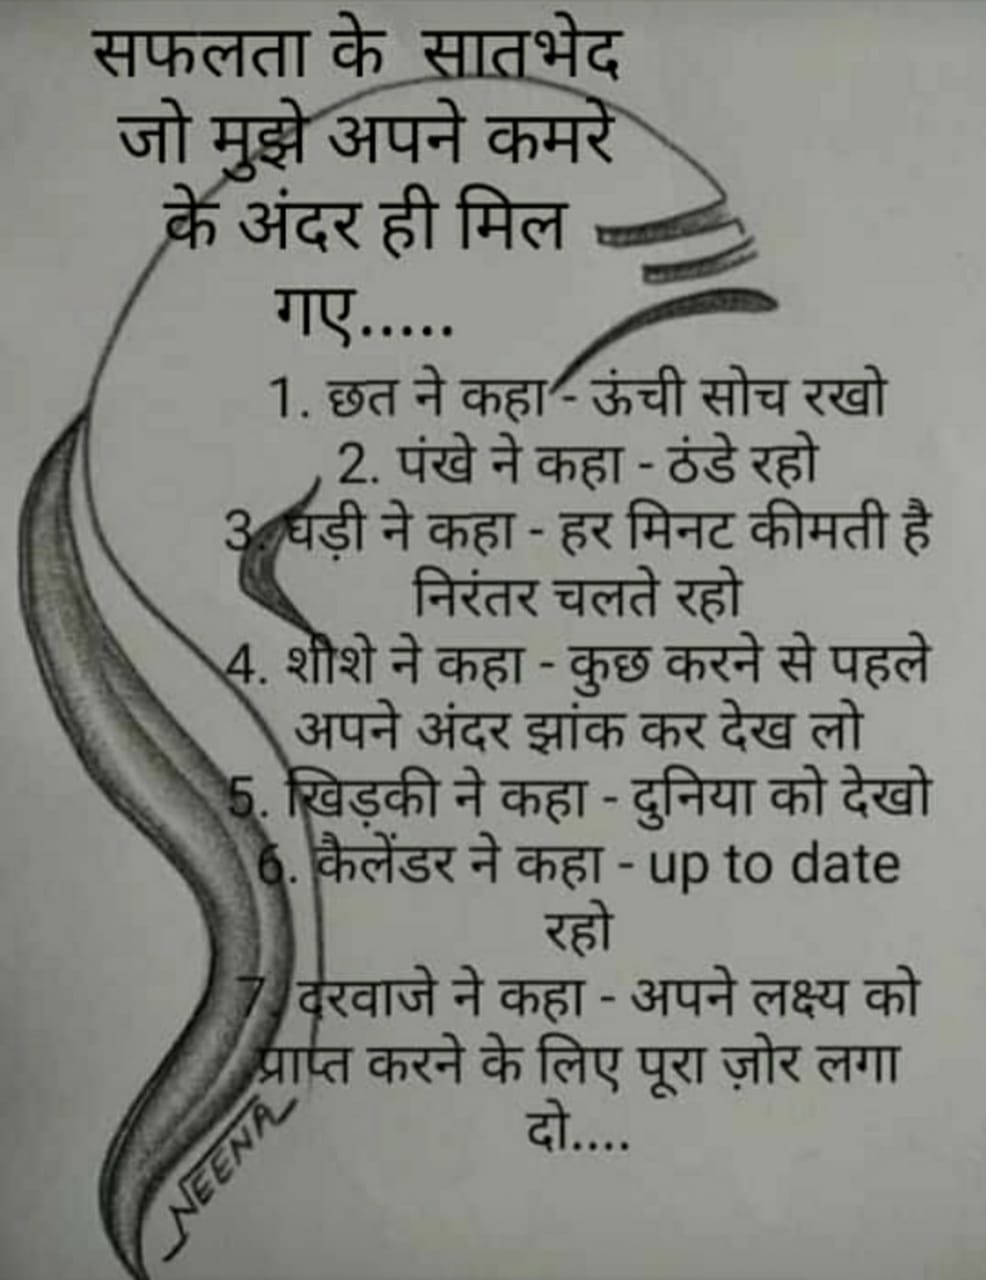 सफलता के सातभेद
जो मुझे अपने कमरे
के अंदर ही मिल
गए.....
1. छत ने कहा - ऊंची सोच रखो
2. पंखे ने कहा - ठंडे रहो
3. घड़ी ने कहा - हर मिनट कीमती है
निरंतर चलते रहो
4. शीशे ने कहा - कुछ करने से पहले
अपने अंदर झांक कर देख लो
5. खिड़की ने कहा - दुनिया को देखो
6. कैलेंडर ने कहा - up to date
रहो
7. दरवाजे ने कहा - अपने लक्ष्य को
प्राप्त करने के लिए पूरा ज़ोर लगा
दो....
NEENA